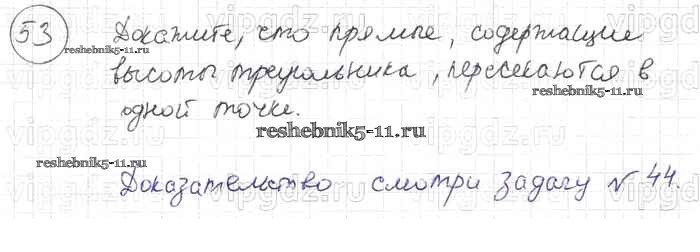 53 Докажите, что прямые, содержащие
высоты треугольника, пересекаются в
одной точке.
Доказательство смотри задачу № 44.
reshebnik5-11.ru
reshebnik5-11.ru
reshebnik5-11.ru
reshebnik5-11.ru